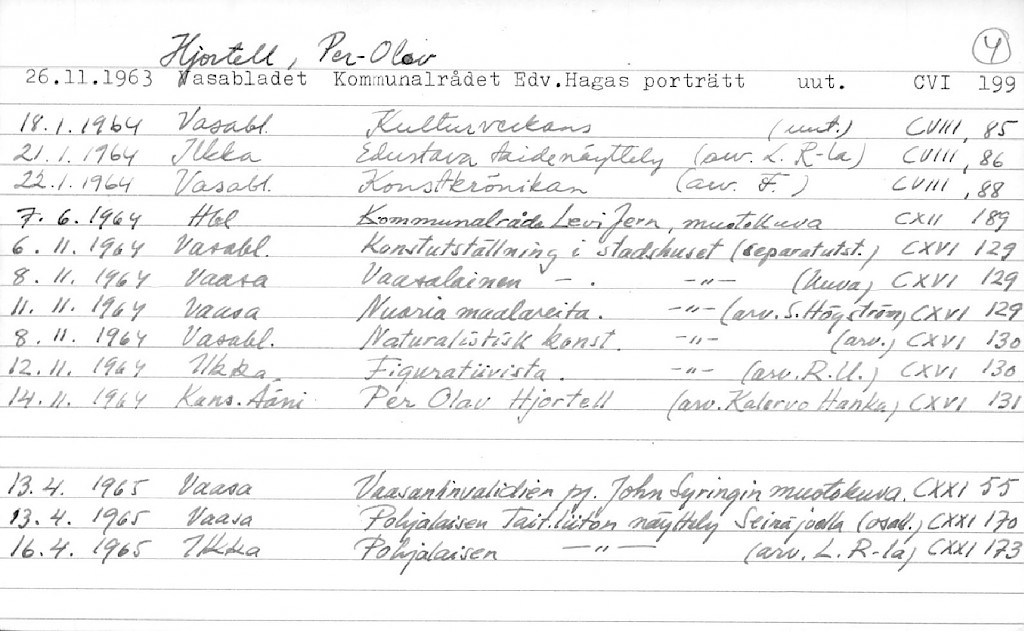 Hjortell, Per-Olov 4
26.11.1963 Vasabladet Kommunalrådet Edv.Hagas porträtt uut. CVI 199
18.1.1964 Vasabl. Kulturveckans (uut.) CVIII, 85
21.1.1964 Ilkka Edustava taidenäyttely (arv. L. R-la) CVIII, 86
22.1.1964 Vasabl. Konstkrönikan (arv. F.) CVIII, 88
7.6.1964 Hbl Kommunalråda Levi Jern, muotokuva CXII 189
6.11.1964 Vasabl. Konstutställning i stadshuset (separatutst.) CXVI 129
8.11.1964 Vaasa Vaasalainen - . -"- (kuva) CXVI 129
11.11.1964 Vaasa Nuoria maalareita. -"- (arv. S. Högström) CXVI 129
8.11.1964 Vasabl. Naturalistisk konst. -"- (arv.) CXVI 130
12.11.1964 Ilkka Figuratiivista. -"- (arv. R.U.) CXVI 130
14.11.1964 Kans. Ääni Per Olav Hjortell (arv. Kalervo Hanka) CXVI 131
13.4.1965 Vaasa Vaasaninvalidien pj. John Syringin muotokuva. CXXI 55
13.4.1965 Vaasa Pohjalaisen Tait.liiton näyttely Seinäjoella (osall.) CXXI 170
16.4.1965 Ilkka Pohjalaisen -"- (arv. L. R-la) CXXI 173